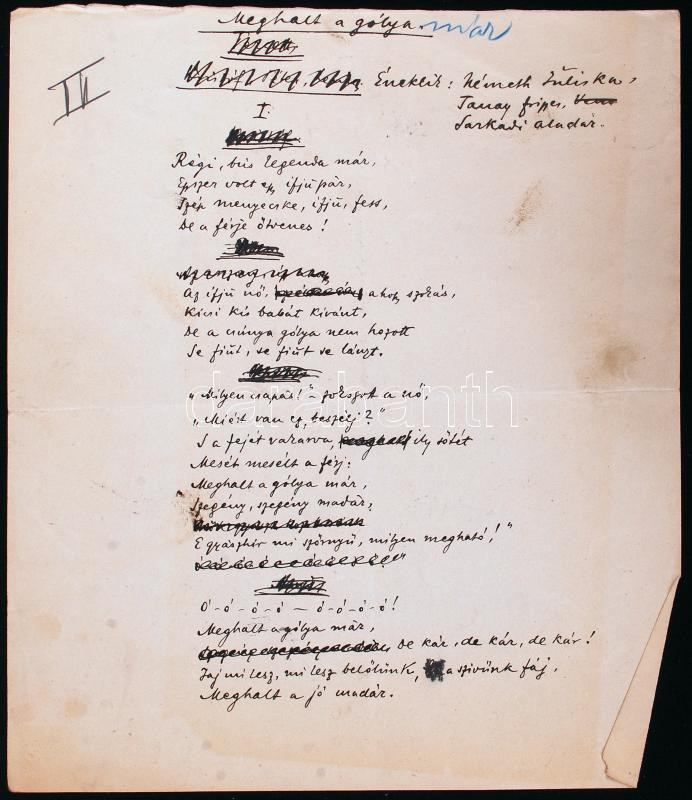 Meghalt a gólya már
II
Éneklik: Németh Juliska,
Tanay Frigyes,
Sarkadi Aladár.
I.
Régi, bús legenda már,
Egyszer volt egy ifjú pár,
Szép menyecske, ifjú, fess,
De a férje ötvenes!
Az ifjú nő, ahogy szokás,
Kicsi kis babát kivánt,
De a csúnya gólya nem hozott
Se fiút, se fiút se lányt.
"Milyen csapás!" zokogott a nő,
"Miért van ez, beszélj?"
S a fejét vakarva, ily sötét
Mesét mesélt a férj:
Meghalt a gólya már,
Szegény, szegény madár,
E gyászhír mi szörnyű, milyen megható!"
Ó-ó-ó-ó-ó-ó-ó-ó!
Meghalt a gólya már,
De kár, de kár, de kár!
Jaj mi lesz, mi lesz belőlünk, a szivünk fáj,
Meghalt a jó madár.
darabanth